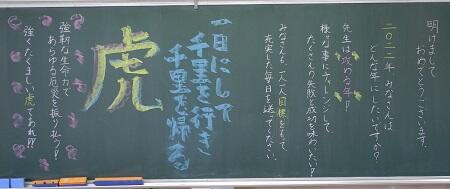 明けまして
おめでとうございます。
二〇二二年みなさんは
どんな年にしたいですか？
先生は攻める年!!
様々な事にチャレンジして
たくさんの失敗と成功を味わいたい!!
みなさんも、一人一人目標をもって、
充実した毎日を送ってください。
一日にして
千里を行き
千里を帰る
虎
強靭な生命力で
あらゆる厄災を振り払う!!
強くたくましい虎であれ!!